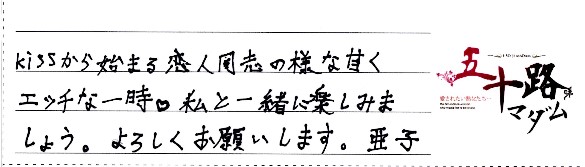 kissから始まる恋人同志の様な甘く
エッチな一時♥私と一緒に楽しみま
しょう。よろしくお願いします。亜子
五十路
マダム
愛されたい熟女たち